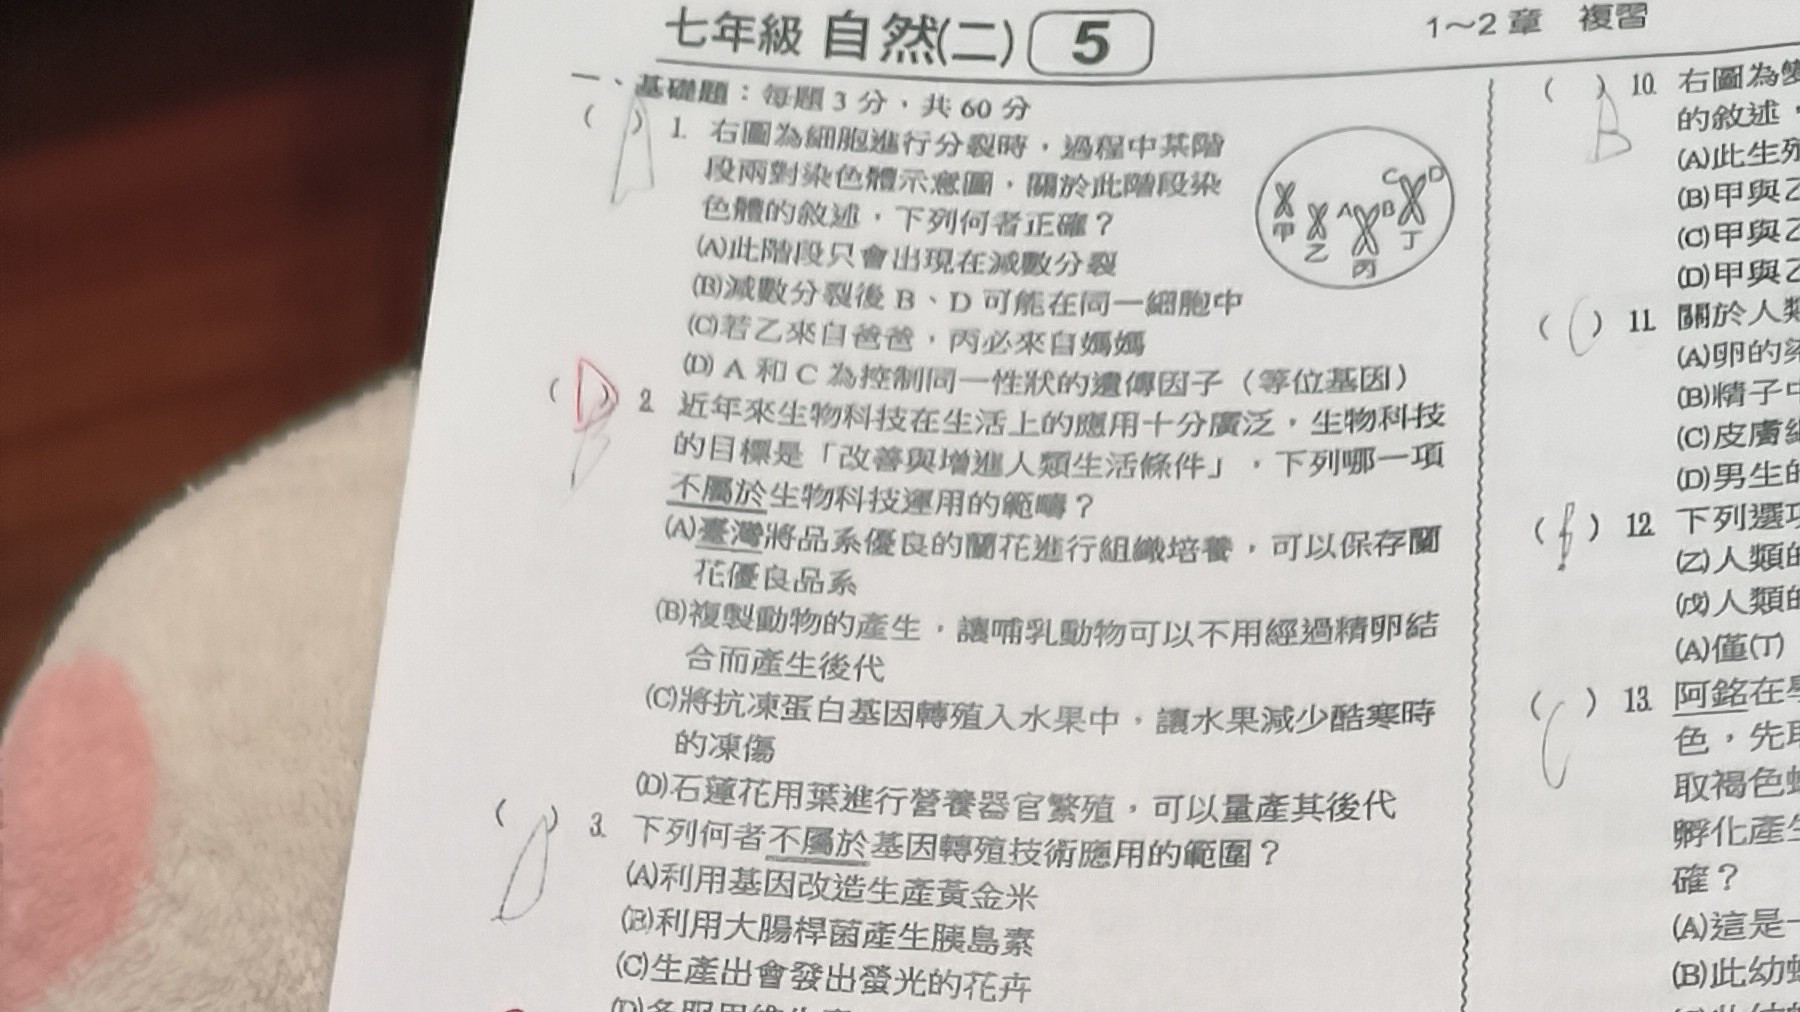 七年級 自然(二) 5
1～2 章 複習
一、基礎題：每題 3 分，共 60 分
( A ) 1. 右圖為細胞進行分裂時，過程中某階
段兩對染色體示意圖，關於此階段染
色體的敘述，下列何者正確？
(A)此階段只會出現在減數分裂
(B)減數分裂後 B、D 可能在同一細胞中
(C)若乙來自爸爸，丙必來自媽媽
(D) A 和 C 為控制同一性狀的遺傳因子（等位基因）
甲 乙 A 丙 B C 丁 D
( D ) 2. 近年來生物科技在生活上的應用十分廣泛，生物科技
B
的目標是「改善與增進人類生活條件」，下列哪一項
不屬於生物科技運用的範疇？
(A)臺灣將品系優良的蘭花進行組織培養，可以保存蘭
花優良品系
(B)複製動物的產生，讓哺乳動物可以不用經過精卵結
合而產生後代
(C)將抗凍蛋白基因轉殖入水果中，讓水果減少酷寒時
的凍傷
(D)石蓮花用葉進行營養器官繁殖，可以量產其後代
( D ) 3. 下列何者不屬於基因轉殖技術應用的範圍？
(A)利用基因改造生產黃金米
(B)利用大腸桿菌產生胰島素
(C)生產出會發出螢光的花卉
( B ) 10. 右圖為
的敘述，
(A)此生殖
(B)甲與乙
(C)甲與乙
(D)甲與乙
( C ) 11. 關於人類
(A)卵的染
(B)精子中
(C)皮膚
(D)男生的
( ) 12. 下列選項
(乙)人類的
(戊)人類的
(A)僅(丁)
( C ) 13. 阿銘在
色，先取
取褐色
孵化產生
確？
(A)這是一
(B)此幼